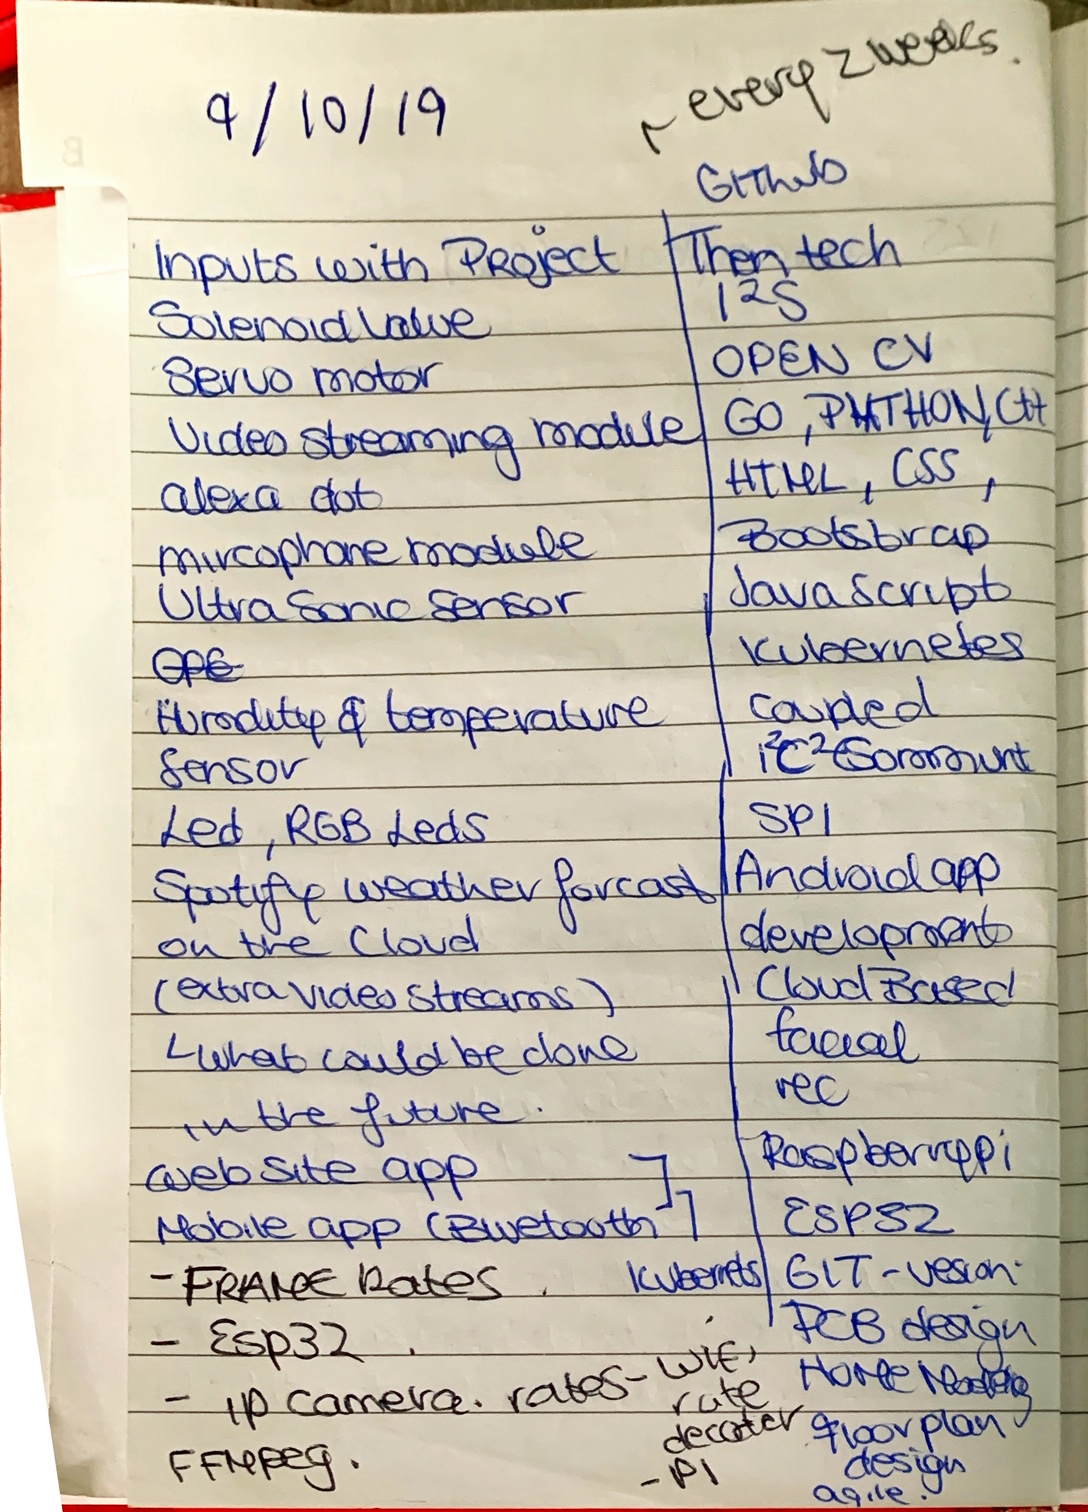 9/10/19
every 2 weeks.
Github
Inputs with Project
Solenoid Valve
Servo motor
Video streaming module
alexa dot
mircophone module
Ultra Sonic Sensor
temperature
Sensor
Led, RGB Leds
Spotify weather forcast
on the Cloud
(extra video streams)
what could be done
in the future.
website app
Mobile app (Bluetooth
- FRAME Rates.
Kubernets
- Esp32.
- IP camera. rates - wifi
rate
- PI
FFMpeg.
Then tech
I2S
OPEN CV
GO, PYTHON, C++
HTML, CSS,
Bootstrap
JavaScript
Kubernetes
I²C
SPI
Android app
development
Cloud Based
facial
rec
Raspberrypi
ESP32
GIT - vesion
PCB design
Home
floor plan
design
agile.